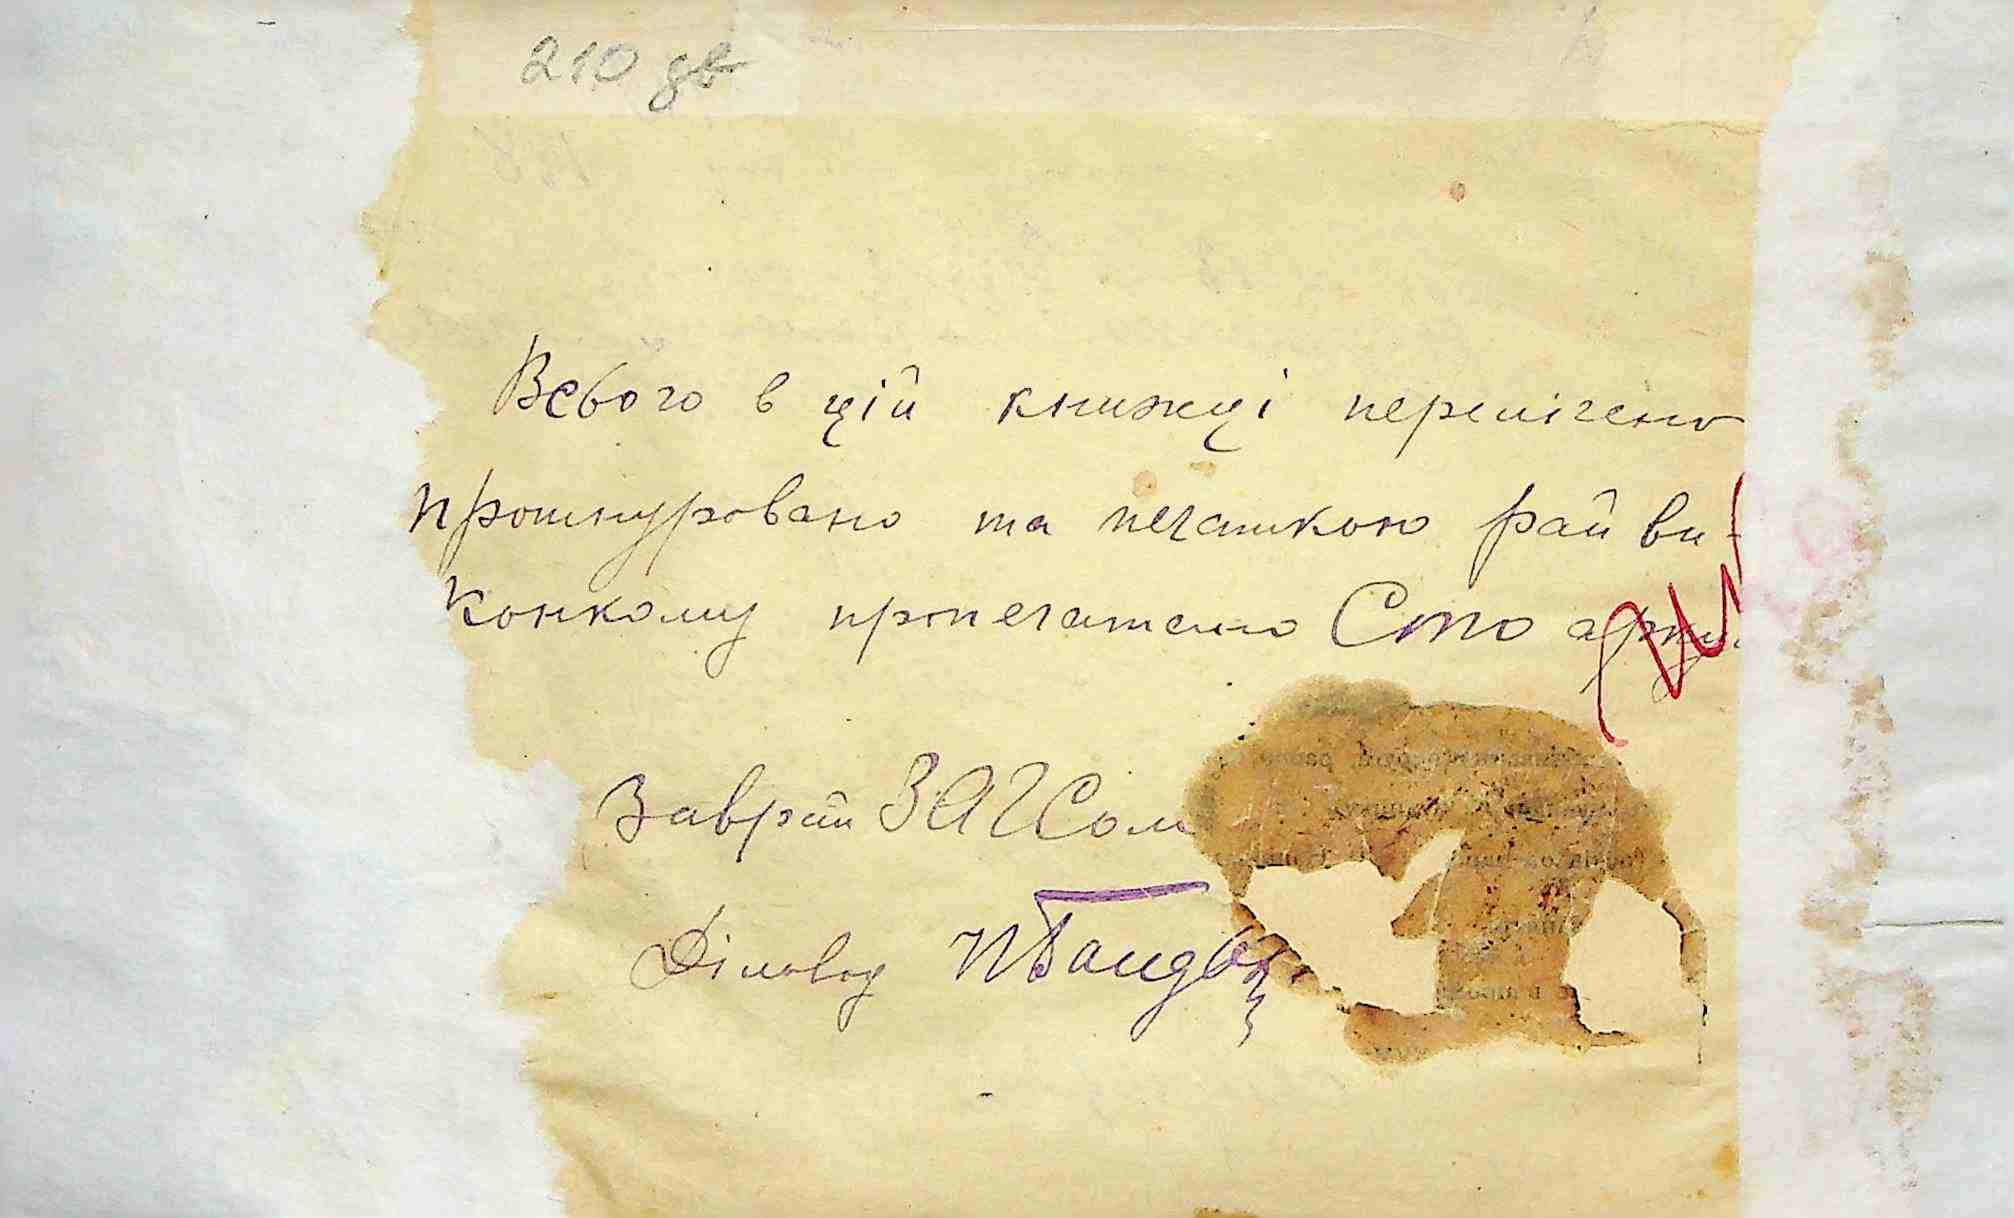 210 дв
Всбого в цій книжці перелічено
прошнуровано та печаткою рай ви-
конкому пропечатано Сто арку
Заврай ЗАГСом
Діловод